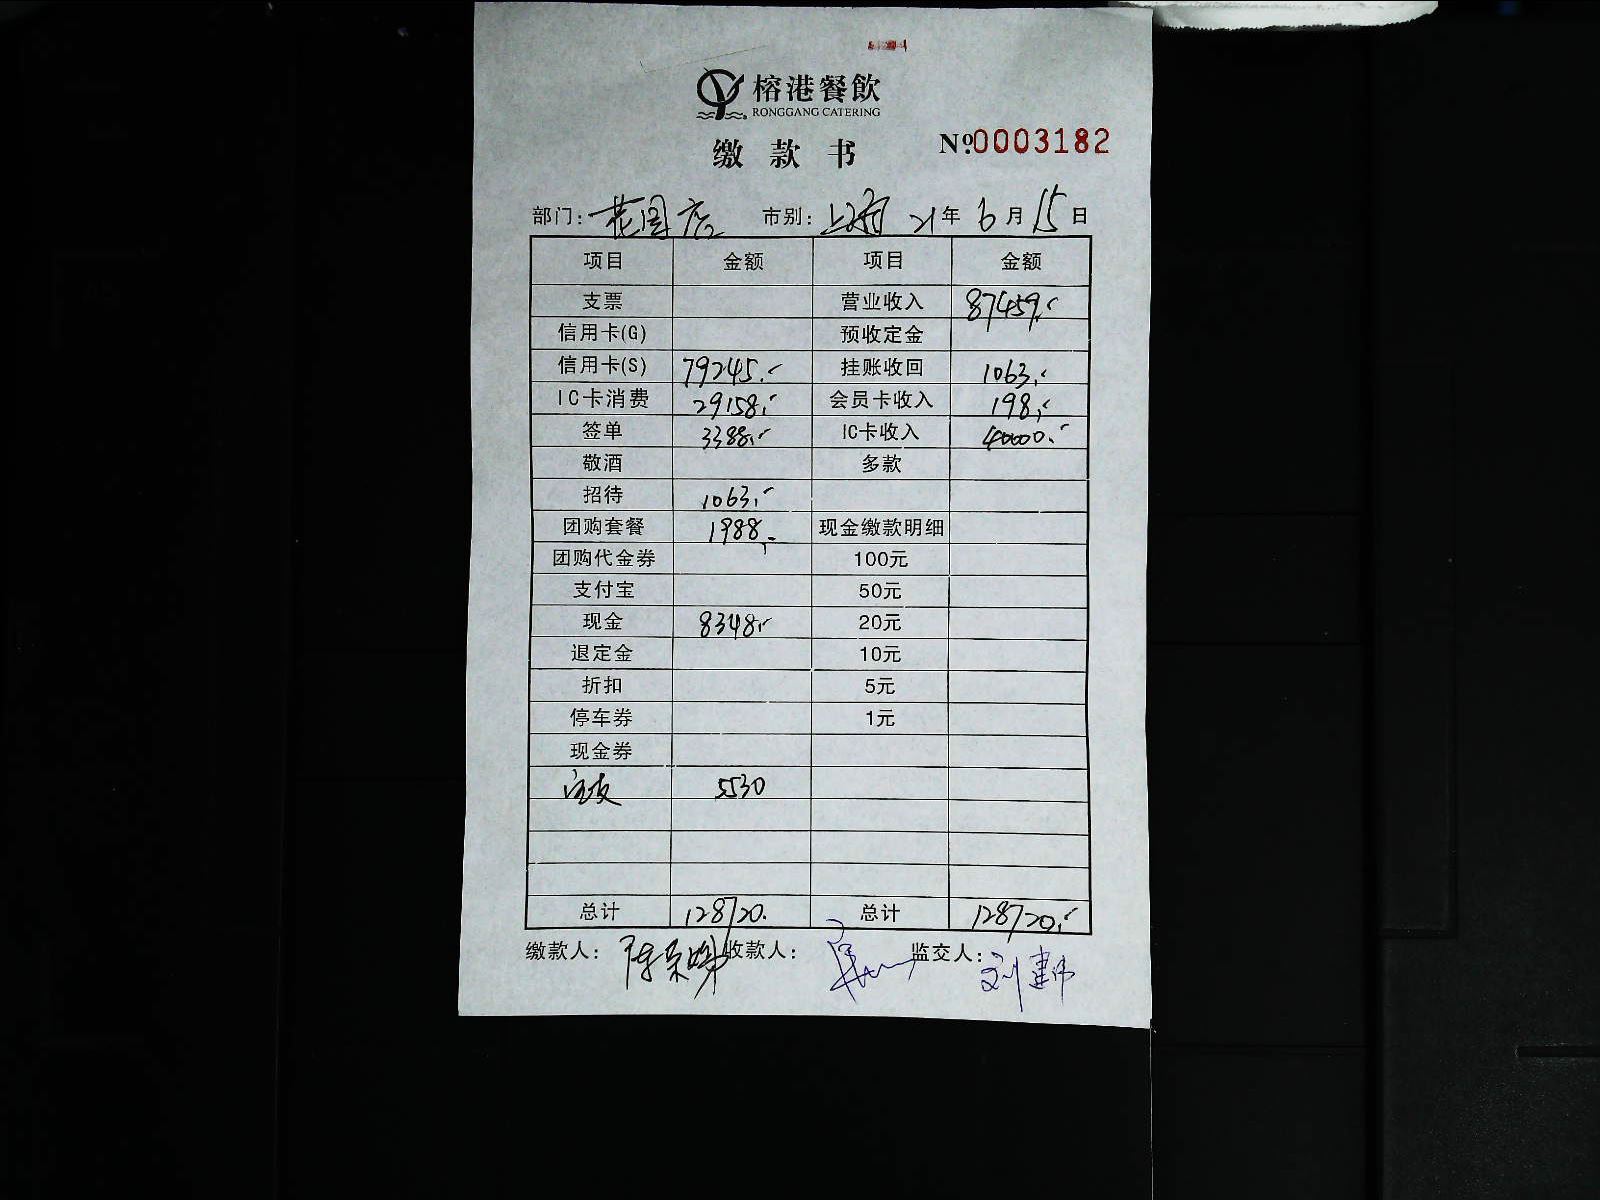 榕港餐飲
RONGGANG CATERING
缴款书 №0003182
部门: 花园店 市别: 21年6月15日
项目 金额 项目 金额
支票 营业收入 87459.-
信用卡(G) 预收定金
信用卡(S) 79245.- 挂账收回 1063.-
IC卡消费 29158.- 会员卡收入 198.-
签单 3388.- IC卡收入 40000.-
敬酒 多款
招待 1063.-
团购套餐 1988.- 现金缴款明细
团购代金券 100元
支付宝 50元
现金 8348.- 20元
退定金 10元
折扣 5元
停车券 1元
现金券
5530
总计 128720. 总计 128720.-
缴款人: 收款人: 监交人: 刘建伟